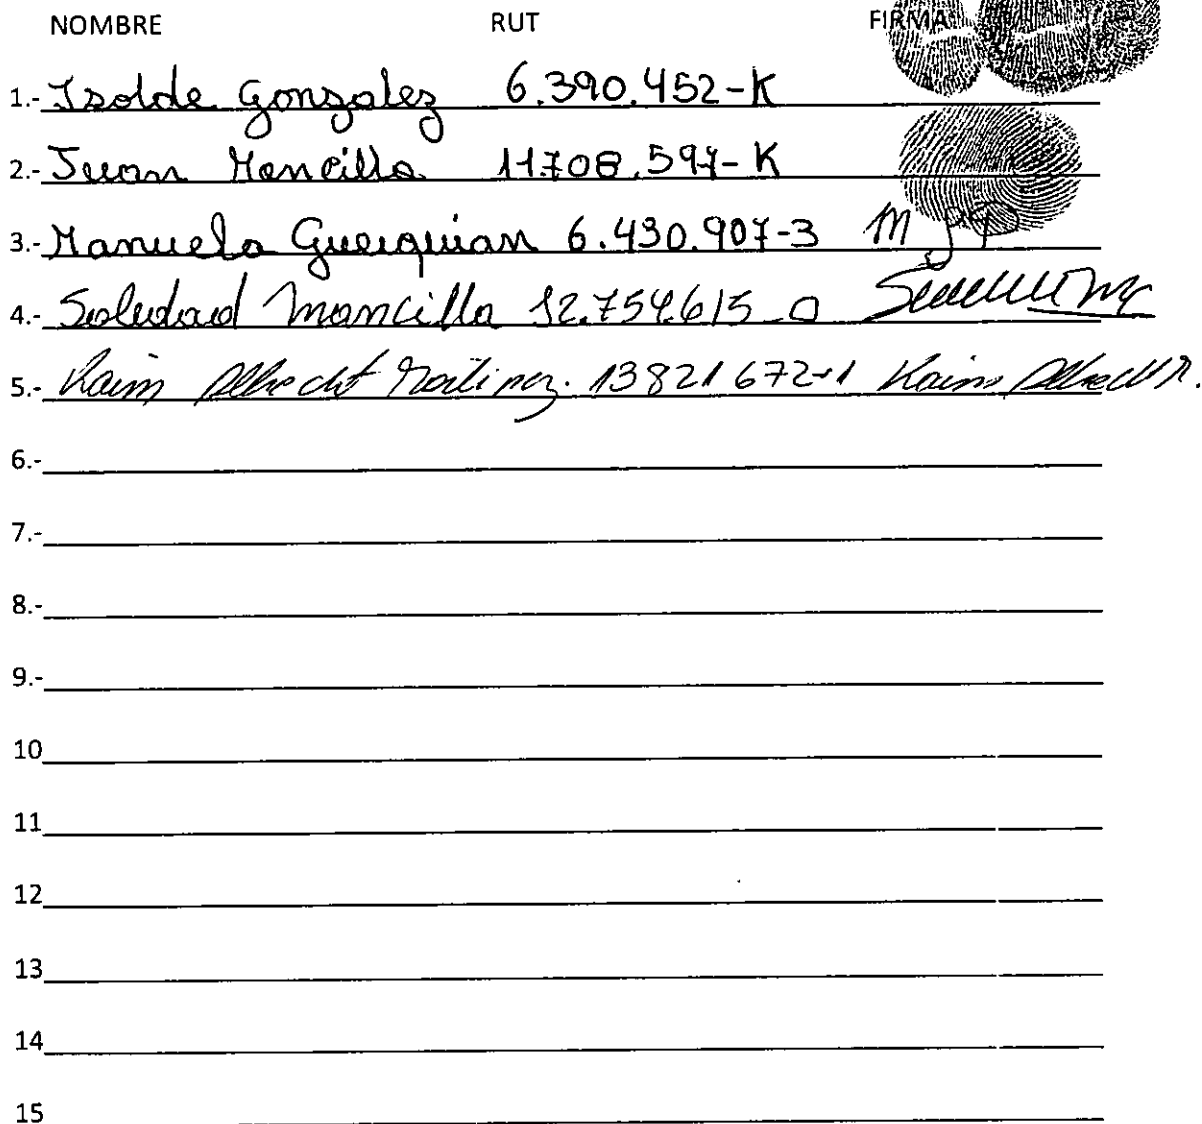 NOMBRE RUT FIRMA
1.- Isolde Gonzalez 6.390.452-K
2.- Juan Mancilla 11.708.597-K
3.- Manuela Gueiquian 6.430.907-3
4.- Soledad Mancilla 12.754.615-0
5.- Karin Albrecht 13821672-1 Karin Albrecht R.
6.-
7.-
8.-
9.-
10
11
12
13
14
15